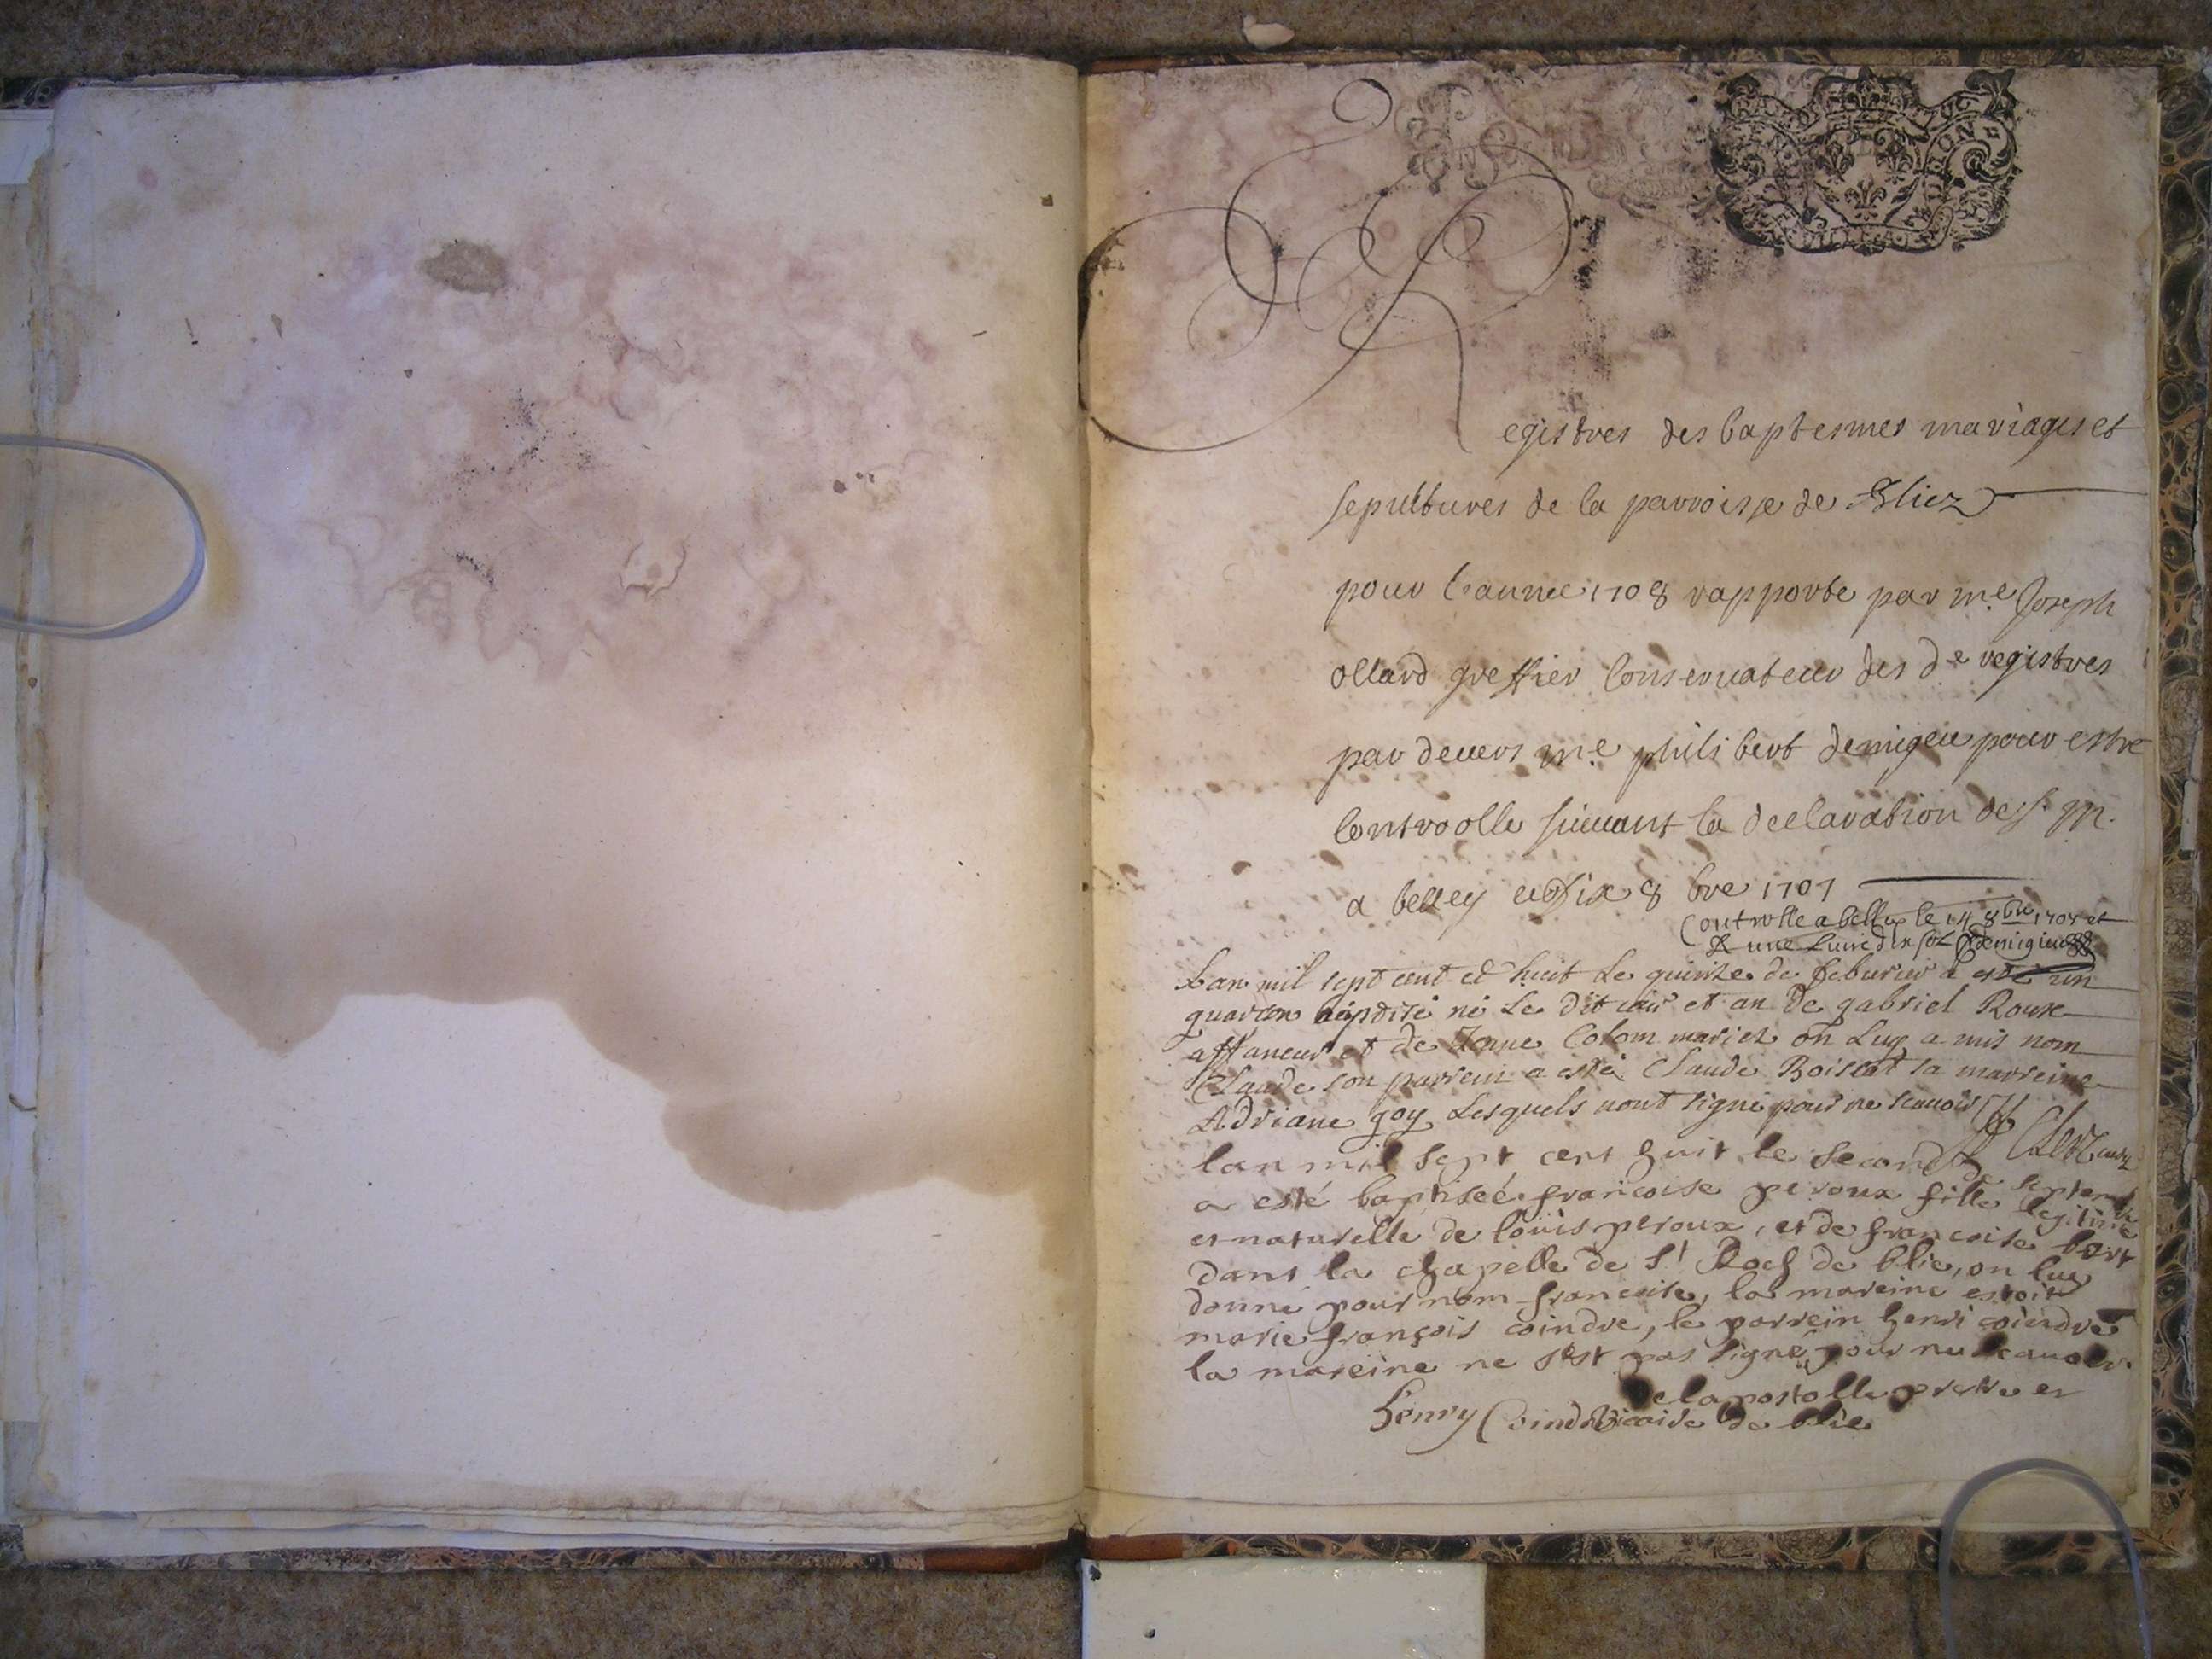 Registres des baptesmes mariages et
sepultures de la parroisse de Bliez
pour l'année 1708 rapporte par me Joseph
ollard greffier Conservateur des ds registres
par devers me philibert demigieu pour estre
Controolle suivant la declaration de s. m.
a belley ce dix 8 bre 1707
Controlle a belley le 14 8bre 1707 et
R une Livre dix sol demigieu
Lan mil sept cent et huit Le quinze de feburier a esté un
guarcon baptisé né Le dit jour et an de gabriel Roux
affaneur et de Jeanne Colom mariez on Luy a mis nom
Claude son parrein a esté Claude Boissat sa marreine
Adriane goy Lesquels nont signé pour ne scauoir
Clerc curé
lan mil sept cent huit le second de septembre
a esté baptiseé francoise peroux fille legitime
et naturelle de loüis peroux, et de francoise bort
dans la chapelle de St Roch de blie, on luy
donné pour nom francoise, la mareine estoit
marie françois coindre, le parrein henri coindre
la mareine ne s'est pas signé pour ne scauoir.
Delapostolle pretre et
henry Coindre Vicaire de blie